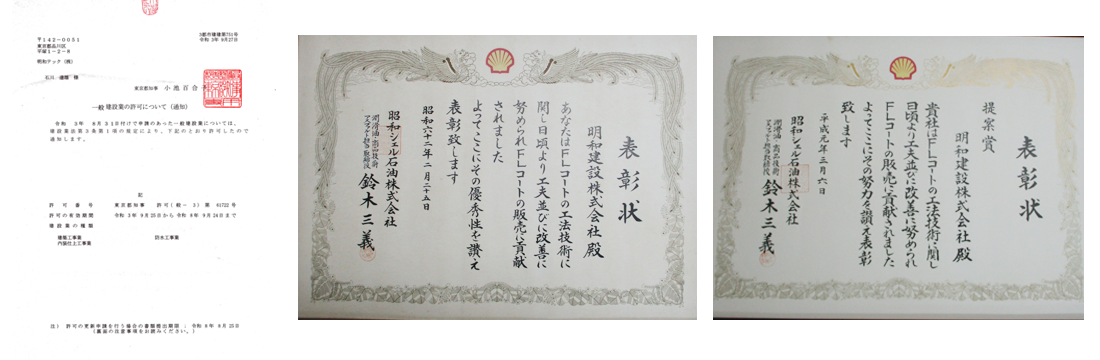 3都市建建第751号
令和 3年 9月27日
〒142-0051
東京都品川区
平塚1-2-8
明和テック(株)
石川 様
東京都知事 小池百合子
一般建設業の許可について(通知)
令和 3年 8月31日付けで申請のあった一般建設業については、
建設業法第3条第1項の規定により、下記のとおり許可したので
通知します。
記
許可番号 東京都知事 許可(般-3)第 61722号
許可の有効期間 令和 3年 9月25日から 令和 8年 9月24日まで
建設業の種類
建築工事業 防水工事業
内装仕上工事業
注) 許可の更新申請を行う場合の書類提出期限 : 令和 8年 8月25日
(裏面の注意事項をお読みください。)
表彰状
明和建設株式会社殿
あなたはFLコートの工法技術に
関し日頃より工夫並びに改善に
努められFLコートの販売に貢献
されました
よってここにその優秀性を讃え
表彰致します
昭和六十二年二月二十五日
昭和シェル石油株式会社
潤滑油・商品技術
アスファルト担当取締役
鈴木三義
表彰状
提案賞
明和建設株式会社殿
貴社はFLコートの工法技術に関し
日頃より工夫並びに改善に努められ
FLコートの販売に貢献されました
よってここにその努力を讃え表彰
致します
平成元年三月六日
昭和シェル石油株式会社
潤滑油・商品技術
アスファルト担当取締役
鈴木三義